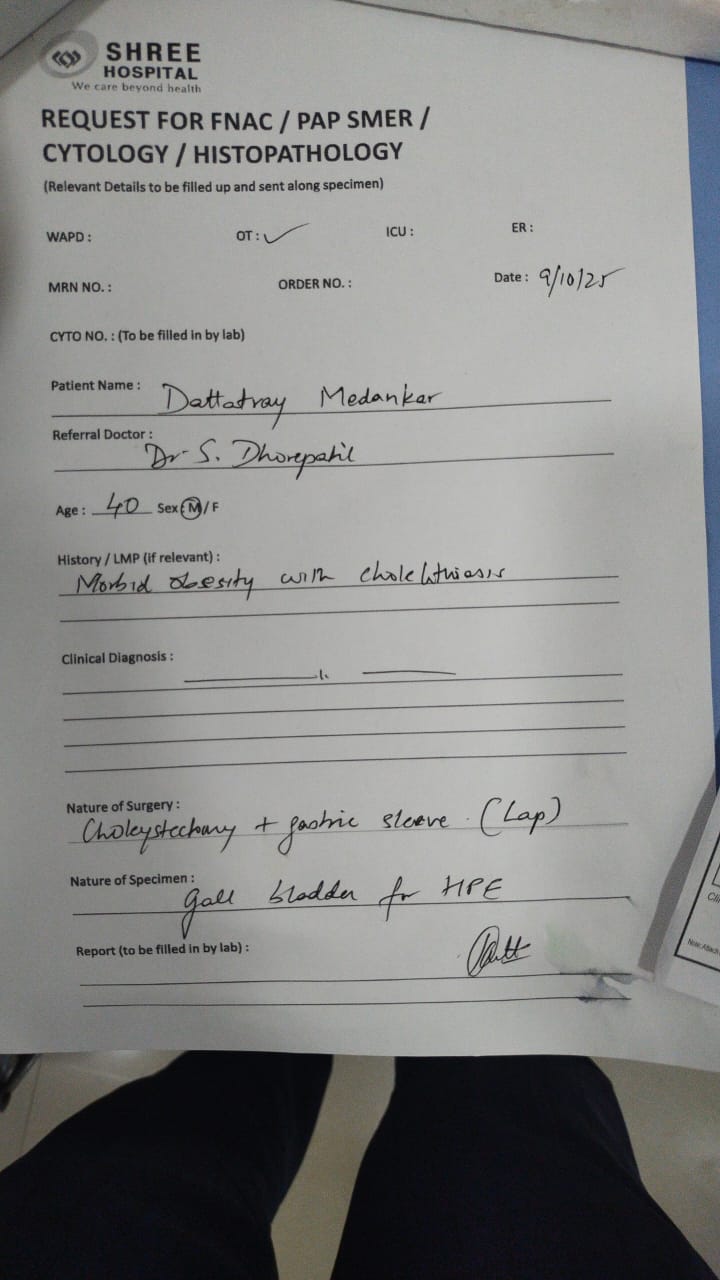 SHREE
HOSPITAL
We care beyond health
REQUEST FOR FNAC / PAP SMER /
CYTOLOGY / HISTOPATHOLOGY
(Relevant Details to be filled up and sent along specimen)
WAPD : OT : ✓ ICU : ER :
MRN NO. : ORDER NO. : Date : 9/10/25
CYTO NO. : (To be filled in by lab)
Patient Name : Dattatray Medankar
Referral Doctor : Dr S. Dhorepatil
Age : 40 Sex M / F
History / LMP (if relevant) :
Morbid obesity with cholelithiasis
Clinical Diagnosis :
Nature of Surgery :
Choleystectomy + gastric sleeve (Lap)
Nature of Specimen :
gall bladder for HPE
Report (to be filled in by lab) :